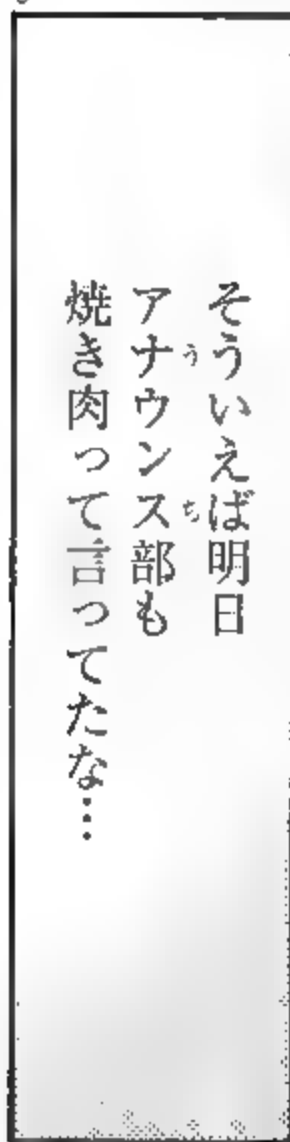 そういえば明日
アナウンス部も
うち
焼き肉って言ってたな…